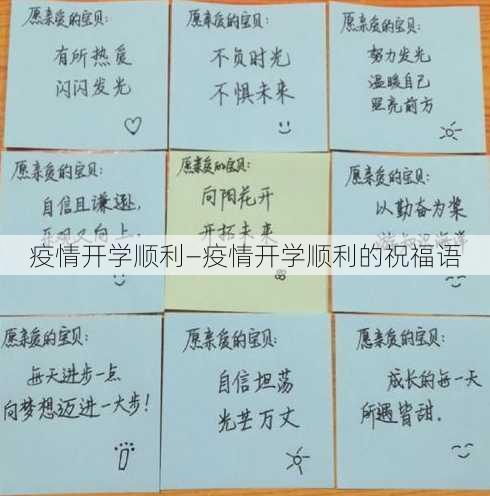 愿亲爱的宝贝:
有所热爱
闪闪发光
愿亲爱的宝贝:
不负时光
不惧未来
愿亲爱的宝贝:
努力发光
温暖自己
照亮前方
愿亲爱的宝贝:
自信且谦逊,
乐观又向上
愿亲爱的宝贝:
向阳花开
开拓未来
愿亲爱的宝贝:
以勤奋为桨
疫情开学顺利–疫情开学顺利的祝福语
愿亲爱的宝贝:
每天进步一点
向梦想迈进一大步!
愿亲爱的宝贝:
自信坦荡
光芒万丈
愿亲爱的宝贝:
成长的每一天
所遇皆甜.